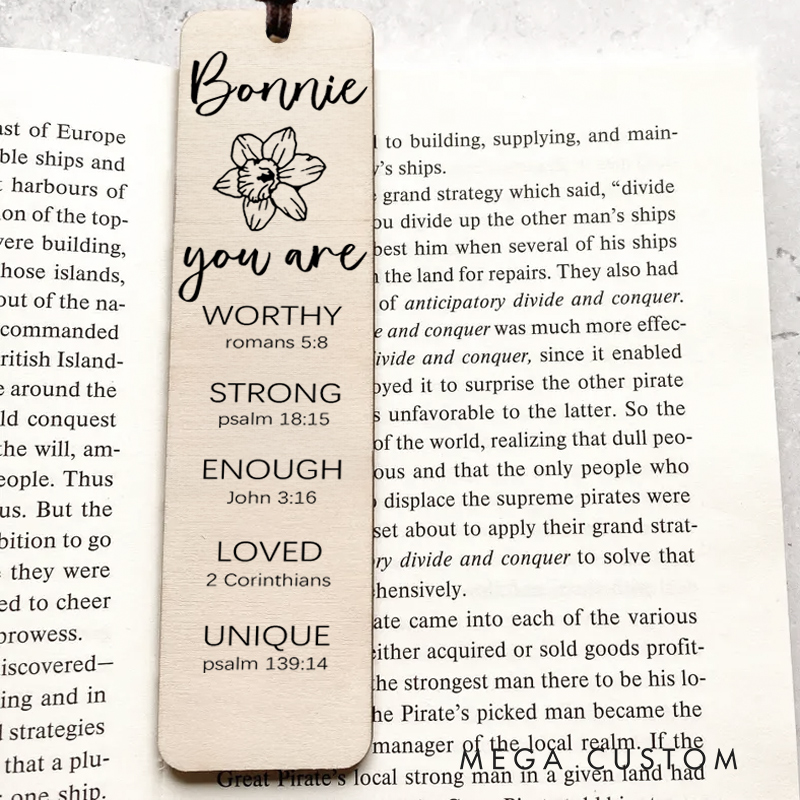 Bonnie
you are
WORTHY
romans 5:8
STRONG
psalm 18:15
ENOUGH
John 3:16
LOVED
2 Corinthians
UNIQUE
psalm 139:14
of Europe
ships and
harbours of
of the top-
building,
islands,
out of the na-
commanded
Island-
around the
conquest
the will, am-
Thus
But the
to go
they were
to cheer
prowess.
and in
strategies
that a plu-
one ship.
to building, supplying, and main-
ships.
grand strategy which said, “divide
divide up the other man’s ships
best him when several of his ships
the land for repairs. They also had
of anticipatory divide and conquer.
and conquer was much more effec-
divide and conquer, since it enabled
it to surprise the other pirate
unfavorable to the latter. So the
of the world, realizing that dull peo-
and that the only people who
displace the supreme pirates were
set about to apply their grand strat-
divide and conquer to solve that
came into each of the various
either acquired or sold goods profit-
the strongest man there to be his lo-
the Pirate’s picked man became the
manager of the local realm. If the
Great Pirate’s local strong man in a given land had
MEGA CUSTOM